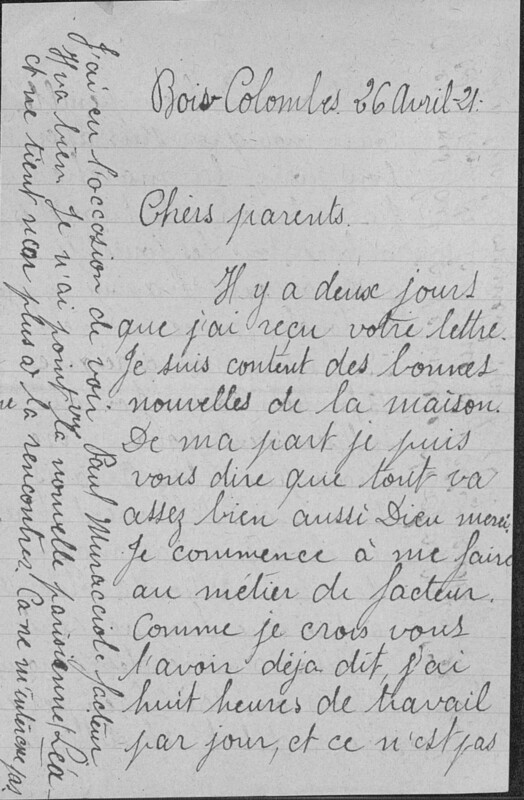 Bois-Colombes. 26 Avril-21.
Chers parents.
Il y a deux jours
que j'ai reçu votre lettre.
Je suis content des bonnes
nouvelles de la maison.
De ma part je puis
vous dire que tout va
assez bien aussi Dieu merci.
Je commence à me faire
au métier de facteur.
Comme je crois vous
l'avoir déja dit, j'ai
huit heures de travail
par jour, et ce n'est pas
J'ai eu l'occasion de voir Paul Muracciole facteur
Il va bien. Je n'ai point vu la nouvelle parisienne, Léa
et ne tient non plus à la rencontrer. Ca ne m'intéresse pas.